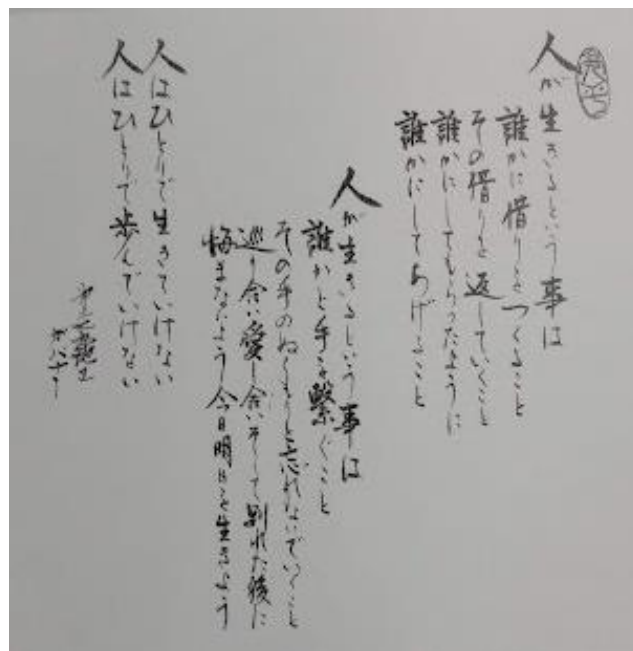 人が生きるという事は
誰かに借りをつくること
その借りを返していくこと
誰かにしてもらったように
誰かにしてあげること
人が生きるという事は
誰かと手を繋ぐこと
その手のぬくもりを忘れないでいること
巡り合い愛し合いそして別れた後に
悔まないよう今日明日を生きよう
人はひとりで生きていけない
人はひとりで歩んでいけない